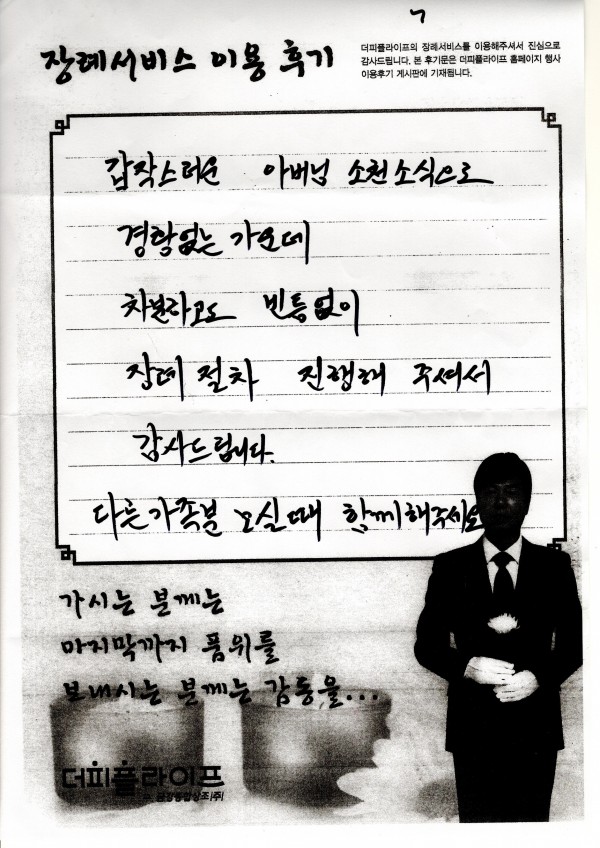 장례서비스 이용 후기
더피플라이프의 장례서비스를 이용해주셔서 진심으로
감사드립니다. 본 후기문은 더피플라이프 홈페이지 행사
이용후기 게시판에 기재됩니다.
갑작스러운 아버님 소천소식으로
경황없는 가운데
차분하고도 빈틈없이
장례 절차 진행해 주셔서
감사드립니다.
다른가족분 모실때 함께해주세요
가시는 분께는
마지막까지 품위를
보내시는 분께는 감동을...
더피플라이프
금강종합상조(주)